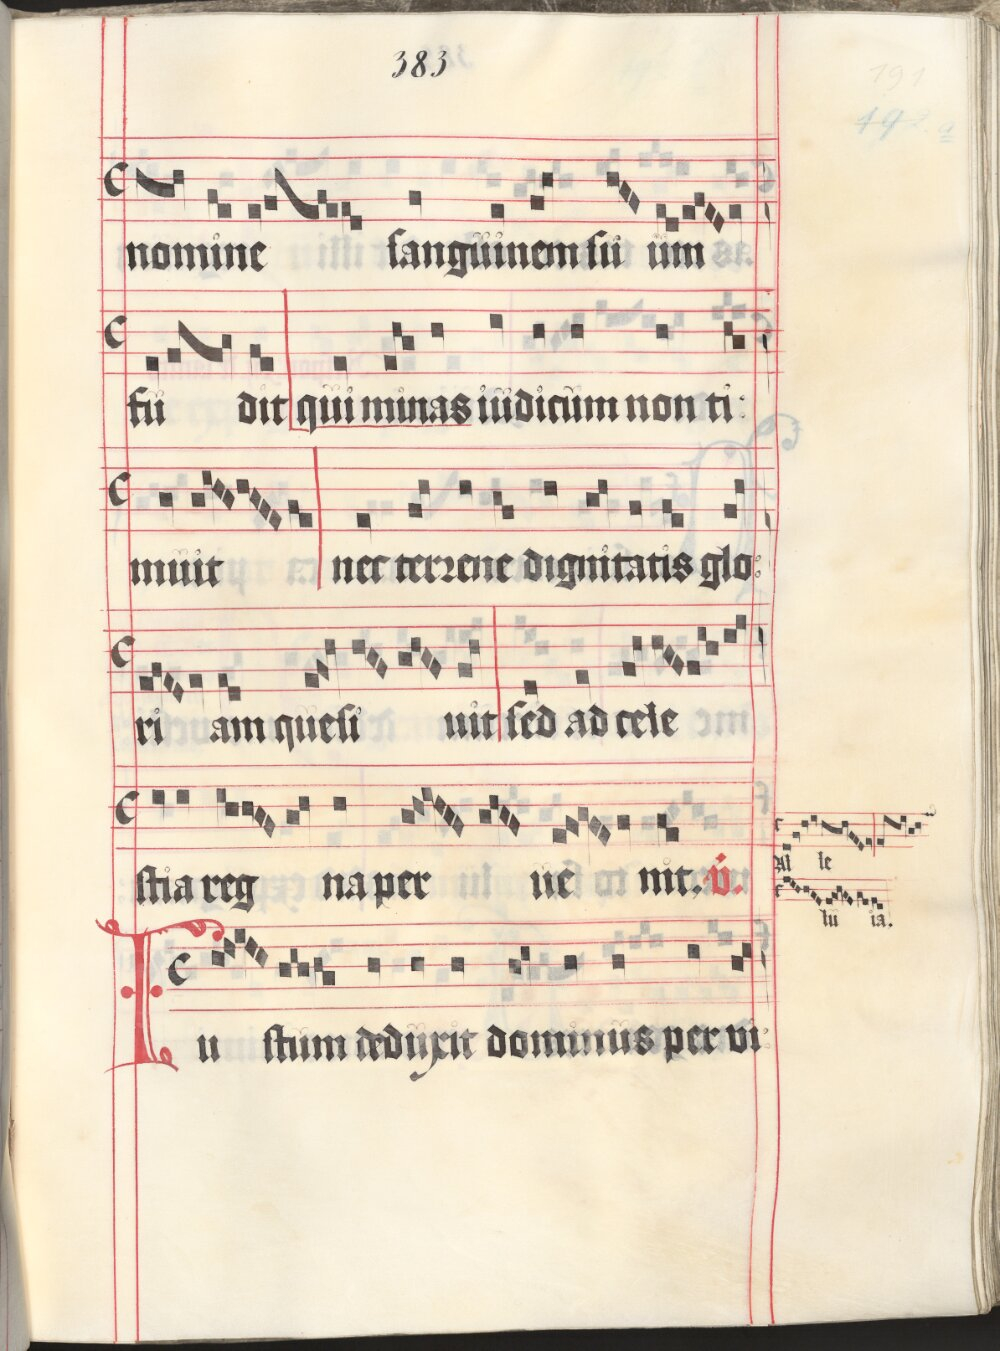 383
191
192.a
nomine sanguinem su um
fu dit qui minas iudicum non ti:
muit nec terrene dignitatis glo:
ri am quesi uit sed ad cele
stia reg na per ue nit. v.
Al le
lu ia.
Iu stum deduxit dominus per vi: